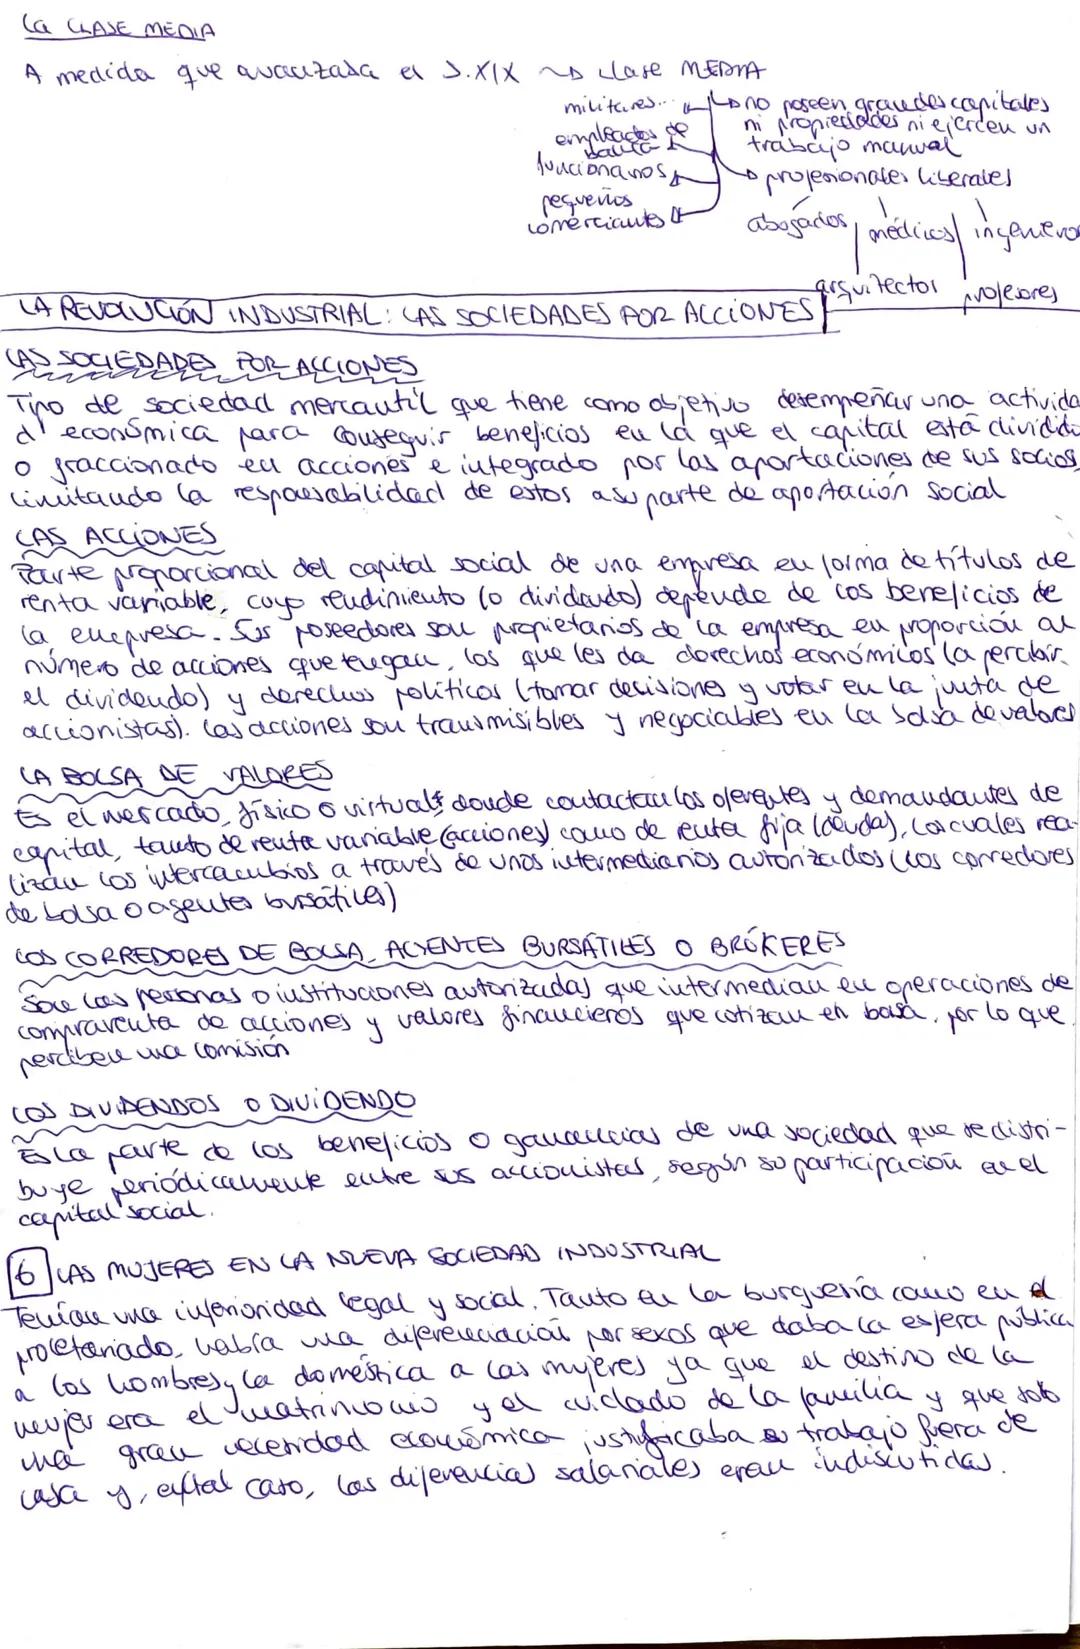 La CLASE MEDIA
A medida que avanzaba el S.XIX ~> clase MEDIA
militares..
no poseen grandes capitales
ni propiedades ni ejercen un
trabajo manual
empleados de
banca
funcionarios
profesionales liberales
pequeños
comerciantes
abogados, médicos, ingenieros
arquitectos profesores
LA REVOLUCIÓN INDUSTRIAL: LAS SOCIEDADES POR ACCIONES
LAS SOCIEDADES POR ACCIONES
Tipo de sociedad mercantil que tiene como objetivo desempeñar una activida
d' económica para conseguir beneficios en la que el capital está dividido
o fraccionado en acciones e integrado por las aportaciones de sus socios,
limitando la responsabilidad de estos a su parte de aportación social
LAS ACCIONES
Parte proporcional del capital social de una empresa en forma de títulos de
renta variable, cuyo rendimiento (o dividendo) depende de los beneficios de
la empresa. Sus poseedores son propietarios de la empresa en proporción al
número de acciones que tengan, los que les da derechos económicos (a percibir
el dividendo) y derechos políticos (tomar decisiones y votar en la junta de
accionistas). Las acciones son transmisibles y negociables en la bolsa de valores
LA BOLSA DE VALORES
Es el mercado, físico o virtual, donde contactan los oferentes y demandantes de
capital, tanto de renta variable (acciones) como de renta fija (deuda), los cuales rea-
lizan los intercambios a través de unos intermediarios autorizados (los corredores
de bolsa o agentes bursátiles)
LOS CORREDORES DE BOLSA, AGENTES BURSÁTILES O BRÓKERES
Son las personas o instituciones autorizadas que intermedian en operaciones de
compraventa de acciones y valores financieros que cotizan en bolsa, por lo que
perciben una comisión
LOS DIVIDENDOS O DIVIDENDO
Es la parte de los beneficios o ganancias de una sociedad que se distri-
buye periódicamente entre sus accionistas, según su participación en el
capital social.
6 LAS MUJERES EN LA NUEVA SOCIEDAD INDUSTRIAL
Tenían una inferioridad legal y social. Tanto en la burguería como en el
proletariado, había una diferenciación por sexos que daba la esfera pública
a los hombres y la doméstica a las mujeres ya que el destino de la
mujer era el matrimonio y el cuidado de la familia y que solo
una gran necesidad económica justificaba su trabajo fuera de
casa y, en tal caso, las diferencias salariales eran indiscutidas.